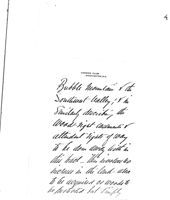 4
Bubble Mountain & the
Southwest Valley; & in
Similarly describing the
wood-right easements &
attendant rights of way
to be done away with in
this deed. This involves no
increase in the land area
to be acquired or woods to
be
but simply